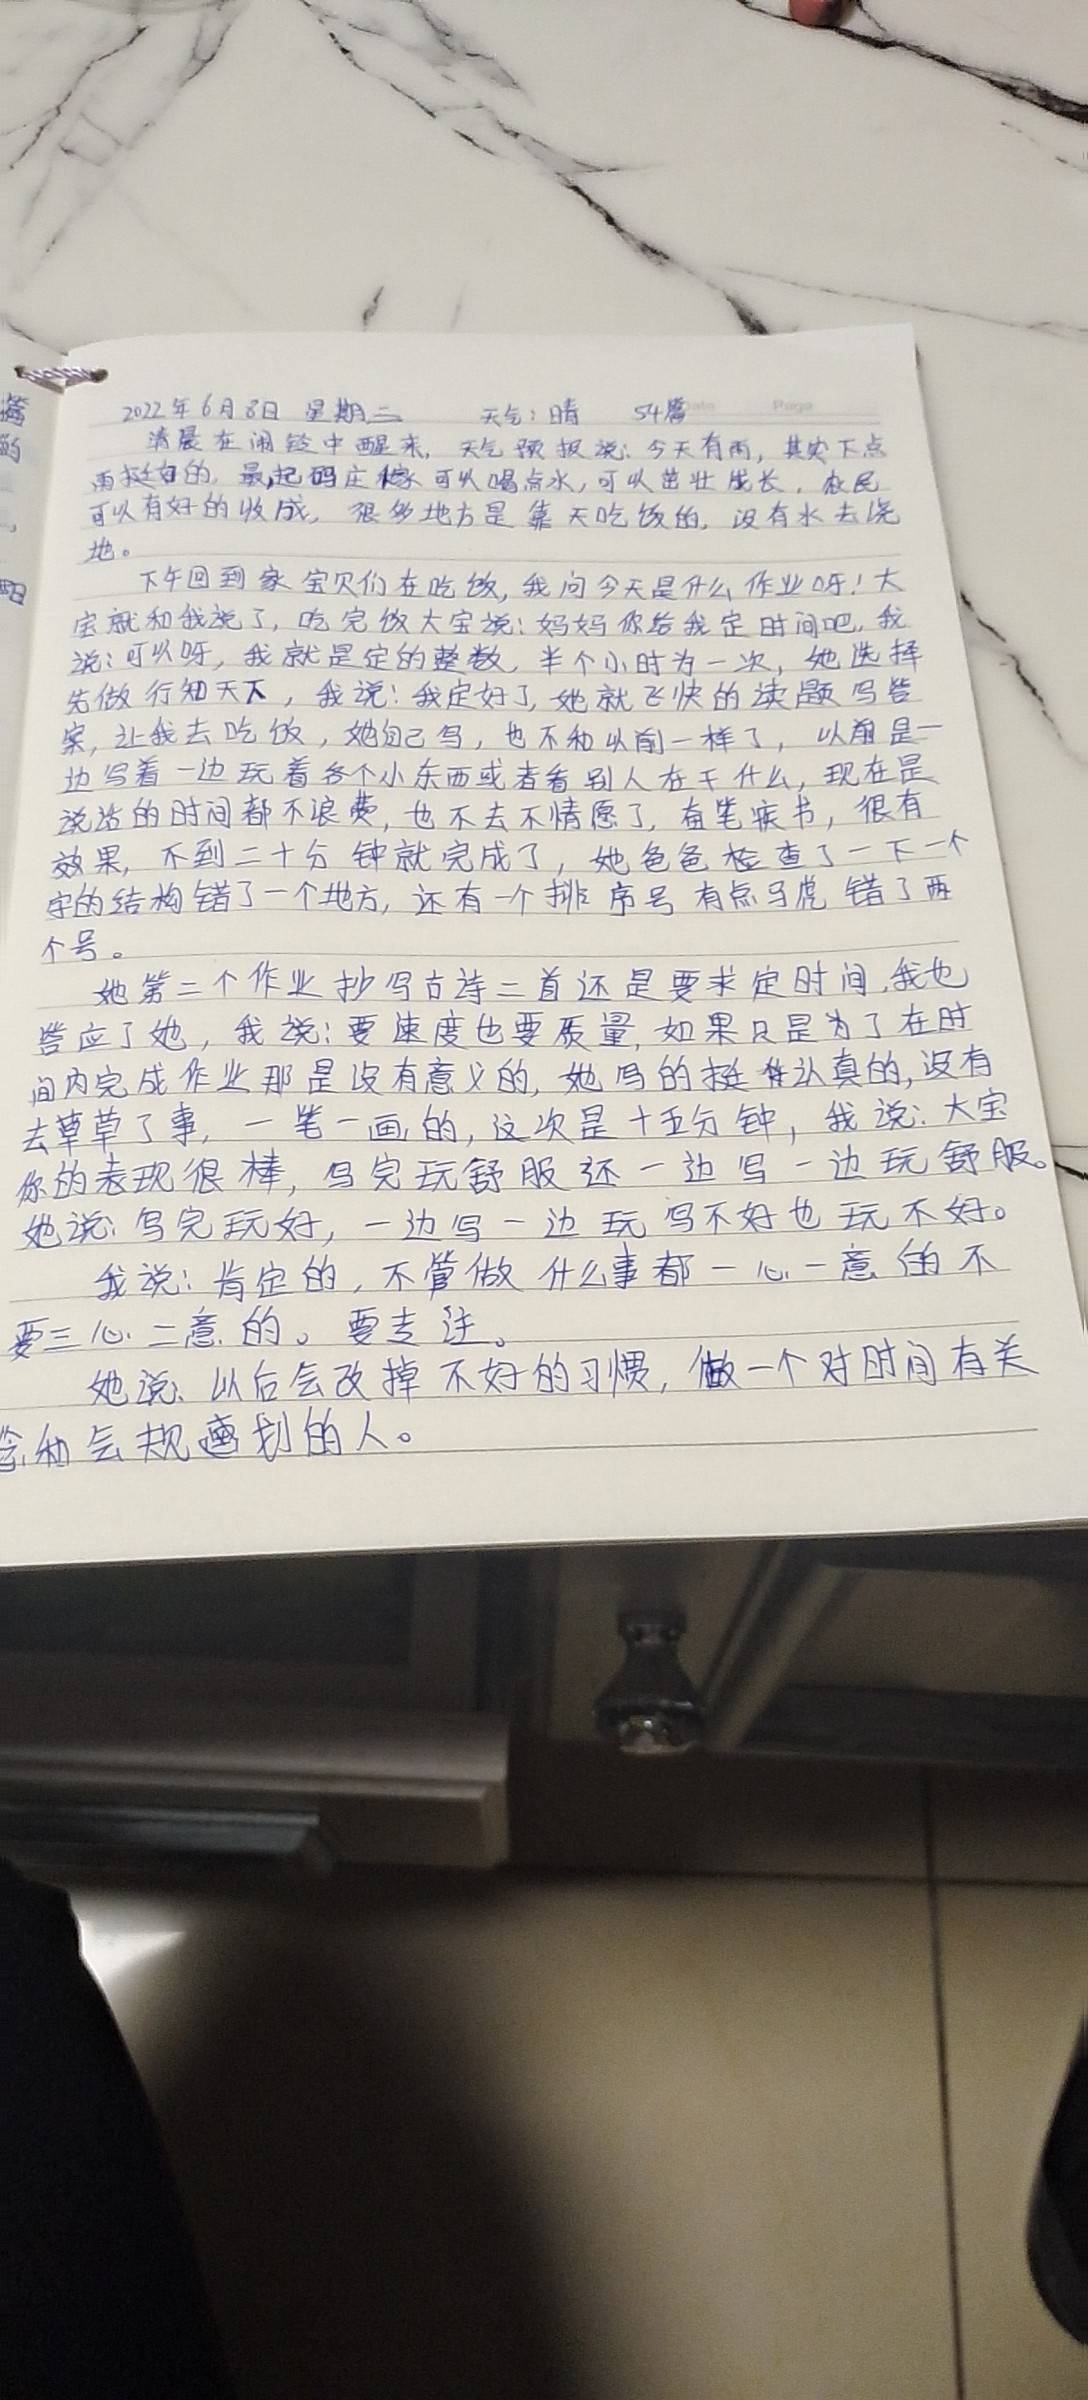 2022年6月8日 星期三 天气:晴 54篇
Date Page
清晨在闹铃中醒来,天气预报说:今天有雨,其实下点
雨挺好的,最起码庄稼可以喝点水,可以茁壮成长,农民
可以有好的收成,很多地方是靠天吃饭的,没有水去浇
地。
下午回到家宝贝们在吃饭,我问今天是什么作业呀!大
宝就和我说了,吃完饭大宝说:妈妈你给我定时间吧,我
说:可以呀,我就是定的整数,半个小时为一次,她选择
先做行知天下,我说:我定好了,她就飞快的读题写答
案,让我去吃饭,她自己写,也不和以前一样了,以前是一
边写着一边玩着各个小东西或者看别人在干什么,现在是
说话的时间都不浪费,也不去不情愿了,奋笔疾书,很有
效果,不到二十分钟就完成了,她爸爸检查了一下一个
字的结构错了一个地方,还有一个排序号有点马虎错了两
个号。
她第二个作业抄写古诗二首还是要求定时间,我也
答应了她,我说:要速度也要质量,如果只是为了在时
间内完成作业那是没有意义的,她写的挺认真的,没有
去草草了事,一笔一画的,这次是十五分钟,我说:大宝
你的表现很棒,写完玩舒服还一边写一边玩舒服。
她说:写完玩好,一边写一边玩写不好也玩不好。
我说:肯定的,不管做什么事都一心一意的不
要三心二意的。要专注。
她说:以后会改掉不好的习惯,做一个对时间有关
念和会规划的人。